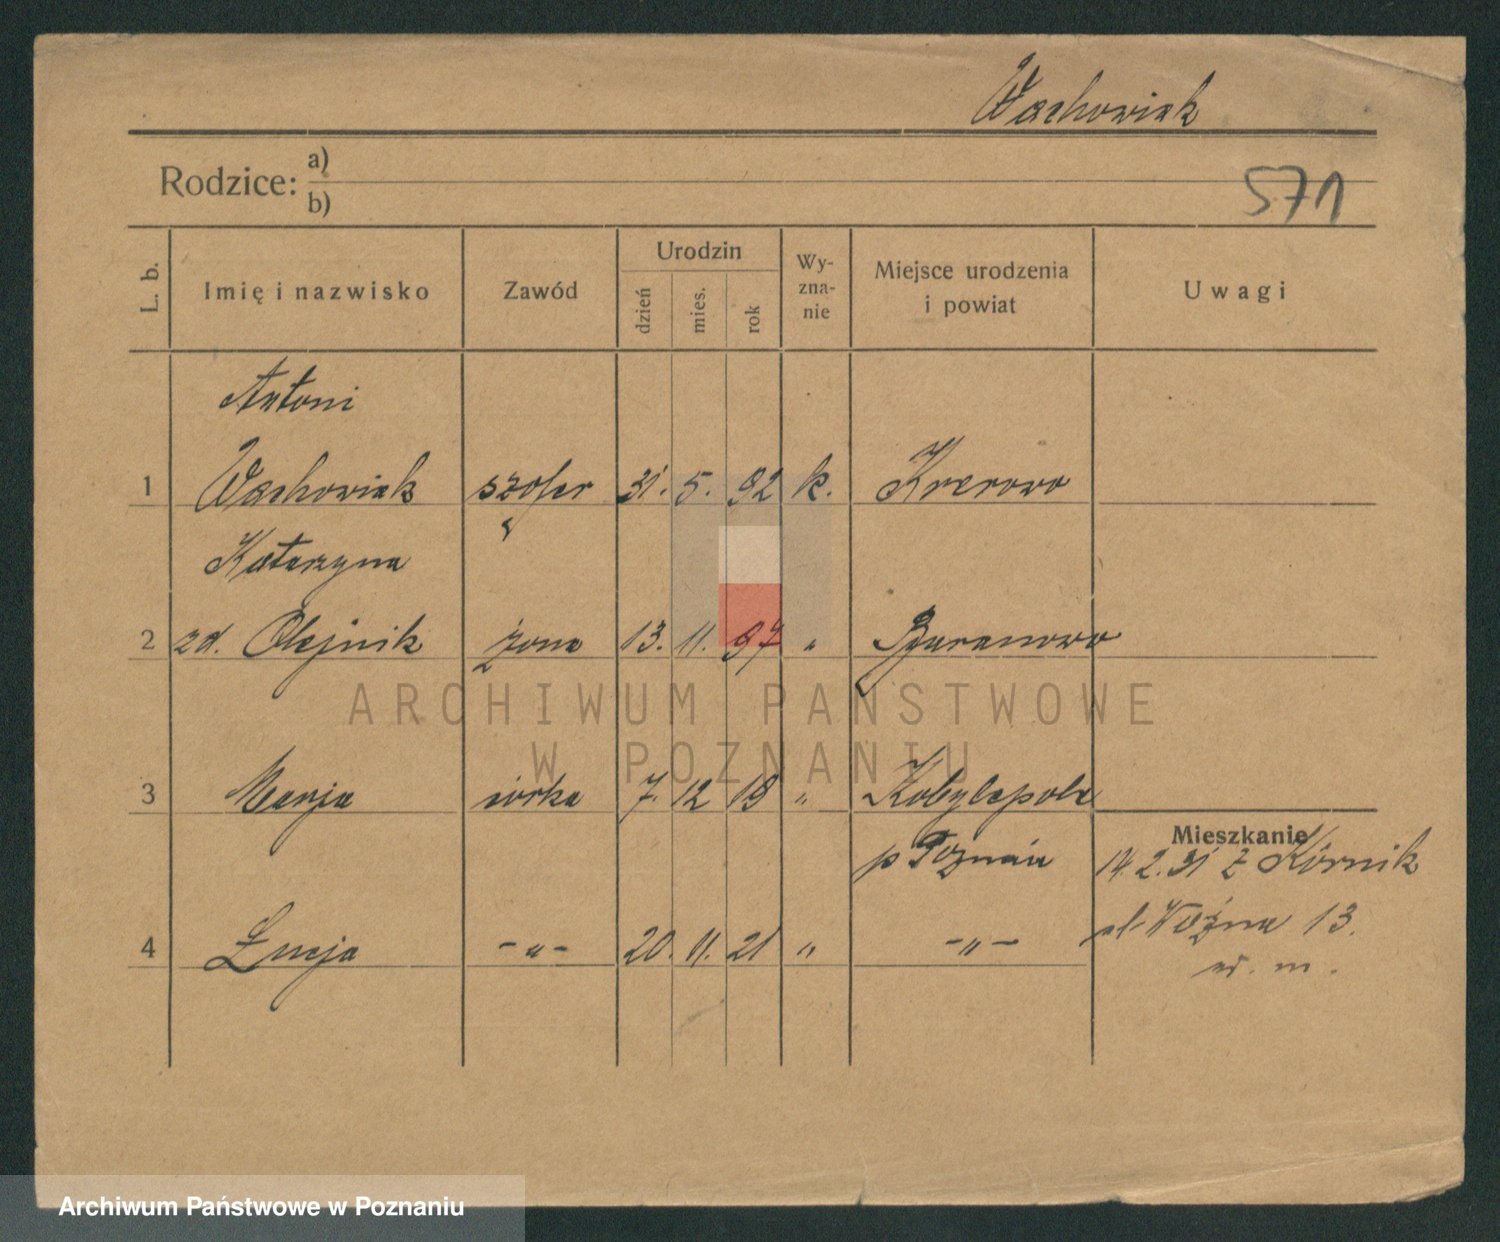 Wachowiak
Rodzice: a)
b)
571
L. b. Imię i nazwisko Zawód Urodzin dzień mies. rok Wy-zna-nie Miejsce urodzenia i powiat Uwagi
Antoni
1 Wachowiak szofer 31. 5. 92 k. Krerowo
Katarzyna
2 zd. Olejnik żona 13. 11. 97 " Baranowo
3 Marja córka 7. 12 19 " Kobylepole
Mieszkanie
p Poznań 14.2.31 z Kórnik
ul. Woźna 13.
4 Łucja -"- 20. 11. 21 " -"-
m.
ARCHIWUM PAŃSTWOWE
W POZNANIU
Archiwum Państwowe w Poznaniu